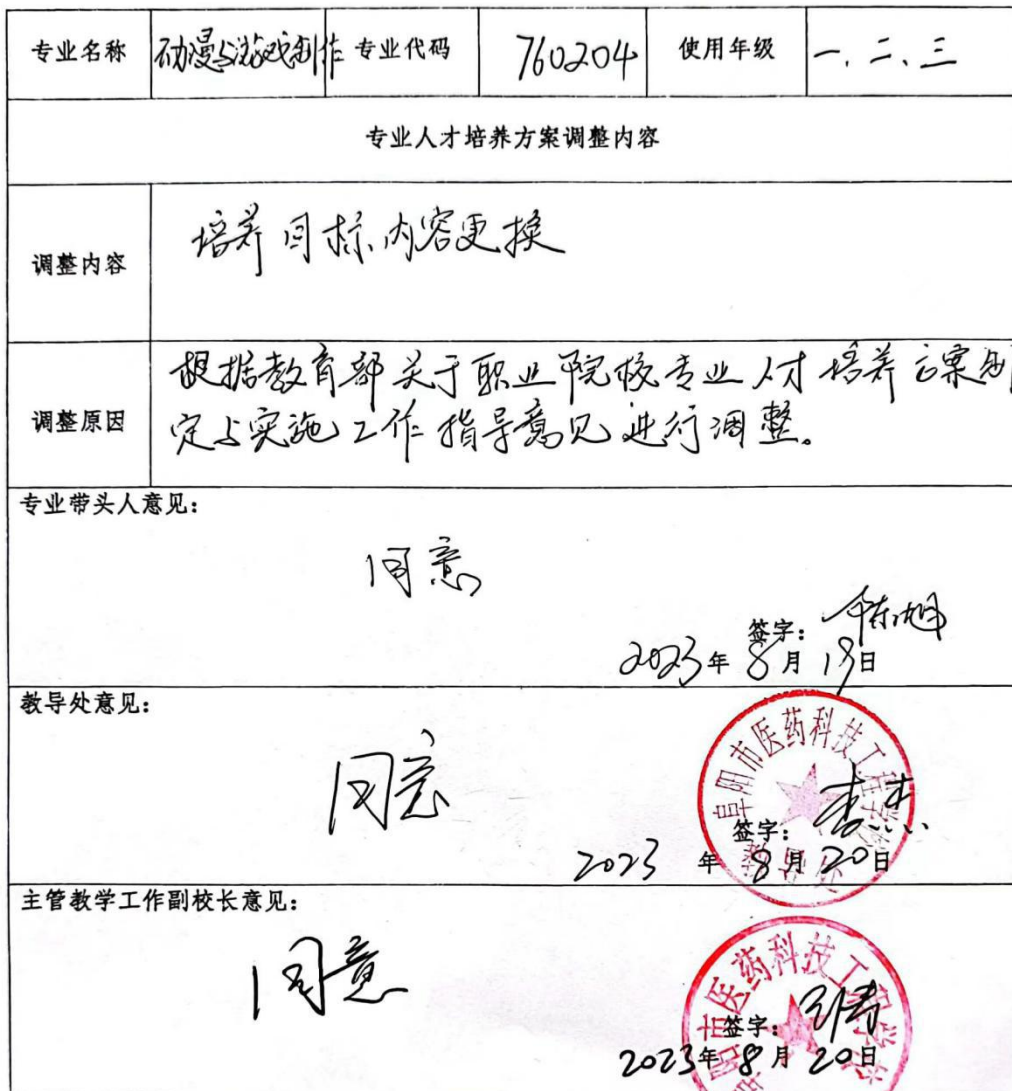 专业名称 动漫与游戏制作 专业代码 760204 使用年级 一、二、三
专业人才培养方案调整内容
调整内容 培养目标内容更换
调整原因 根据教育部关于职业院校专业人才培养方案制
定与实施工作指导意见进行调整。
专业带头人意见:
同意
签字: 陈旭
2023年 8月 19日
教导处意见:
同意
阜阳市医药科技工程学校
签字:
2023 年 8月 20日
主管教学工作副校长意见:
同意
阜阳市医药科技工程学校
签字:
2023年 8月 20日